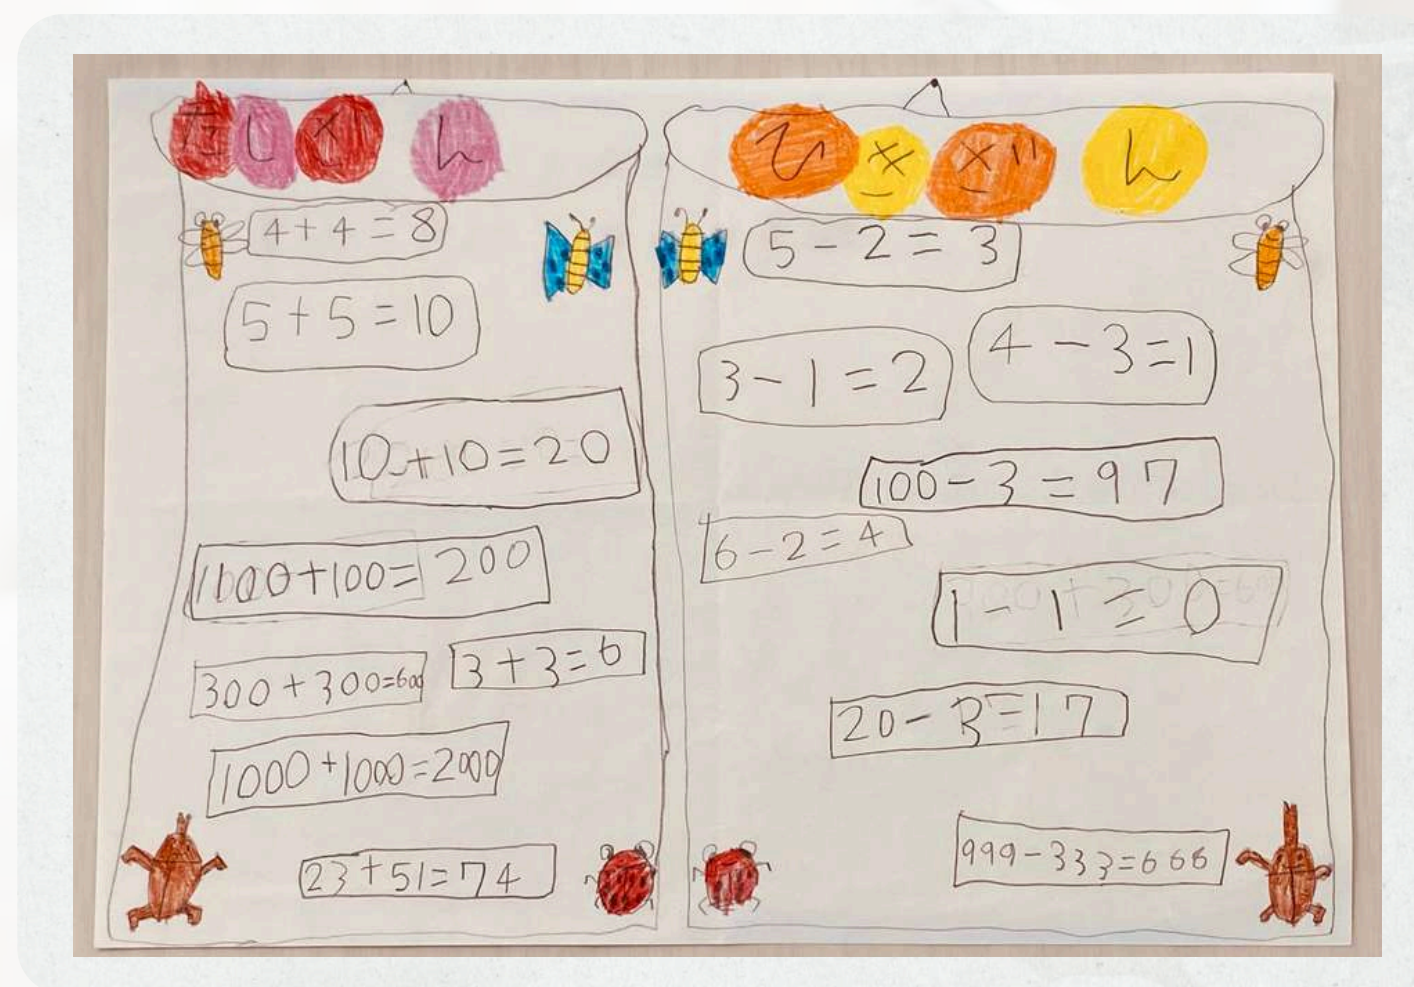 たしざん
4+4=8
5+5=10
10+10=20
100+100=200
300+300=600
3+3=6
1000+1000=2000
23+51=74
ひきざん
5-2=3
3-1=2
4-3=1
100-3=97
6-2=4
1-1=0
20-3=17
999-333=666